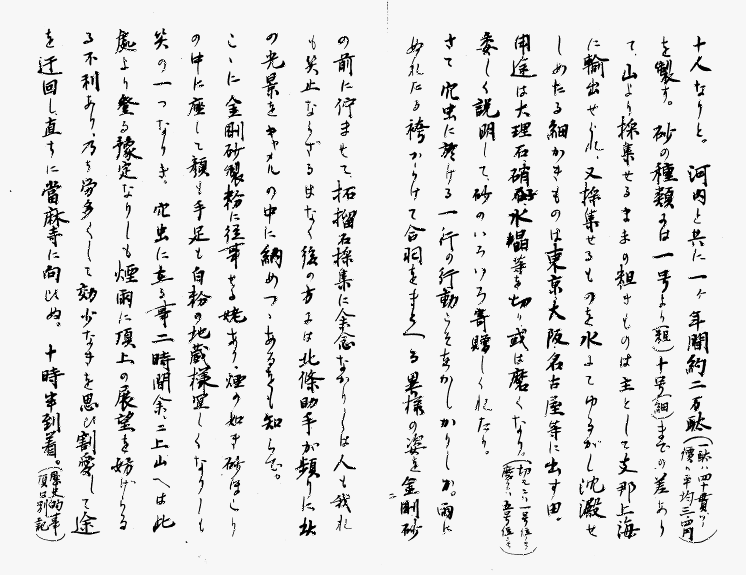 十人なりと。河内と共に一ヶ年間約二万駄(一駄ハ四十貫ニテ價ハ平均三、四円)
を製す。砂の種類には一号より(粗)十号(細)までの差あり
て、山より採集せるままの粗きものは主として支那上海
に輸出せられ、又採集せるものを水にてゆるがし沈澱せ
しめたる細かきものは東京、大阪名古屋等に出す由。
用途は大理石硝子、水晶等を切り或は磨くなり。(切ルニハ一号位ニテ磨クハ五号位ニテ)
委しく説明して、砂のいろいろ寄贈しくれたり。
さて穴虫に於ける一行の行動こそをかしかりしか。雨に
ぬれたる袴かかげて合羽をまとへる異様の姿を金剛砂
の前に佇ませて、柘榴石採集に余念なかりしは人も我れ
も笑止ならざるはなく後の方には北條助手が頻りに此
の光景をキャメルの中に納めつゝあるをも知らで。
こゝに金剛砂製粉に従事せる姥あり、煙の如き砂ほこり
の中に座して顔も手足も白粉の地蔵様宜しくなりしも
笑の一つなりき。穴虫に在る事二時間余、二上山へは此
處より登る豫定なりしも煙雨に頂上の展望を妨げらる
る不利あり、乃ち労多くして効少なきを思ひ割愛して途
を迂回し直ちに當麻寺に向ひぬ。十時半到着。(歴史的事項は別記)